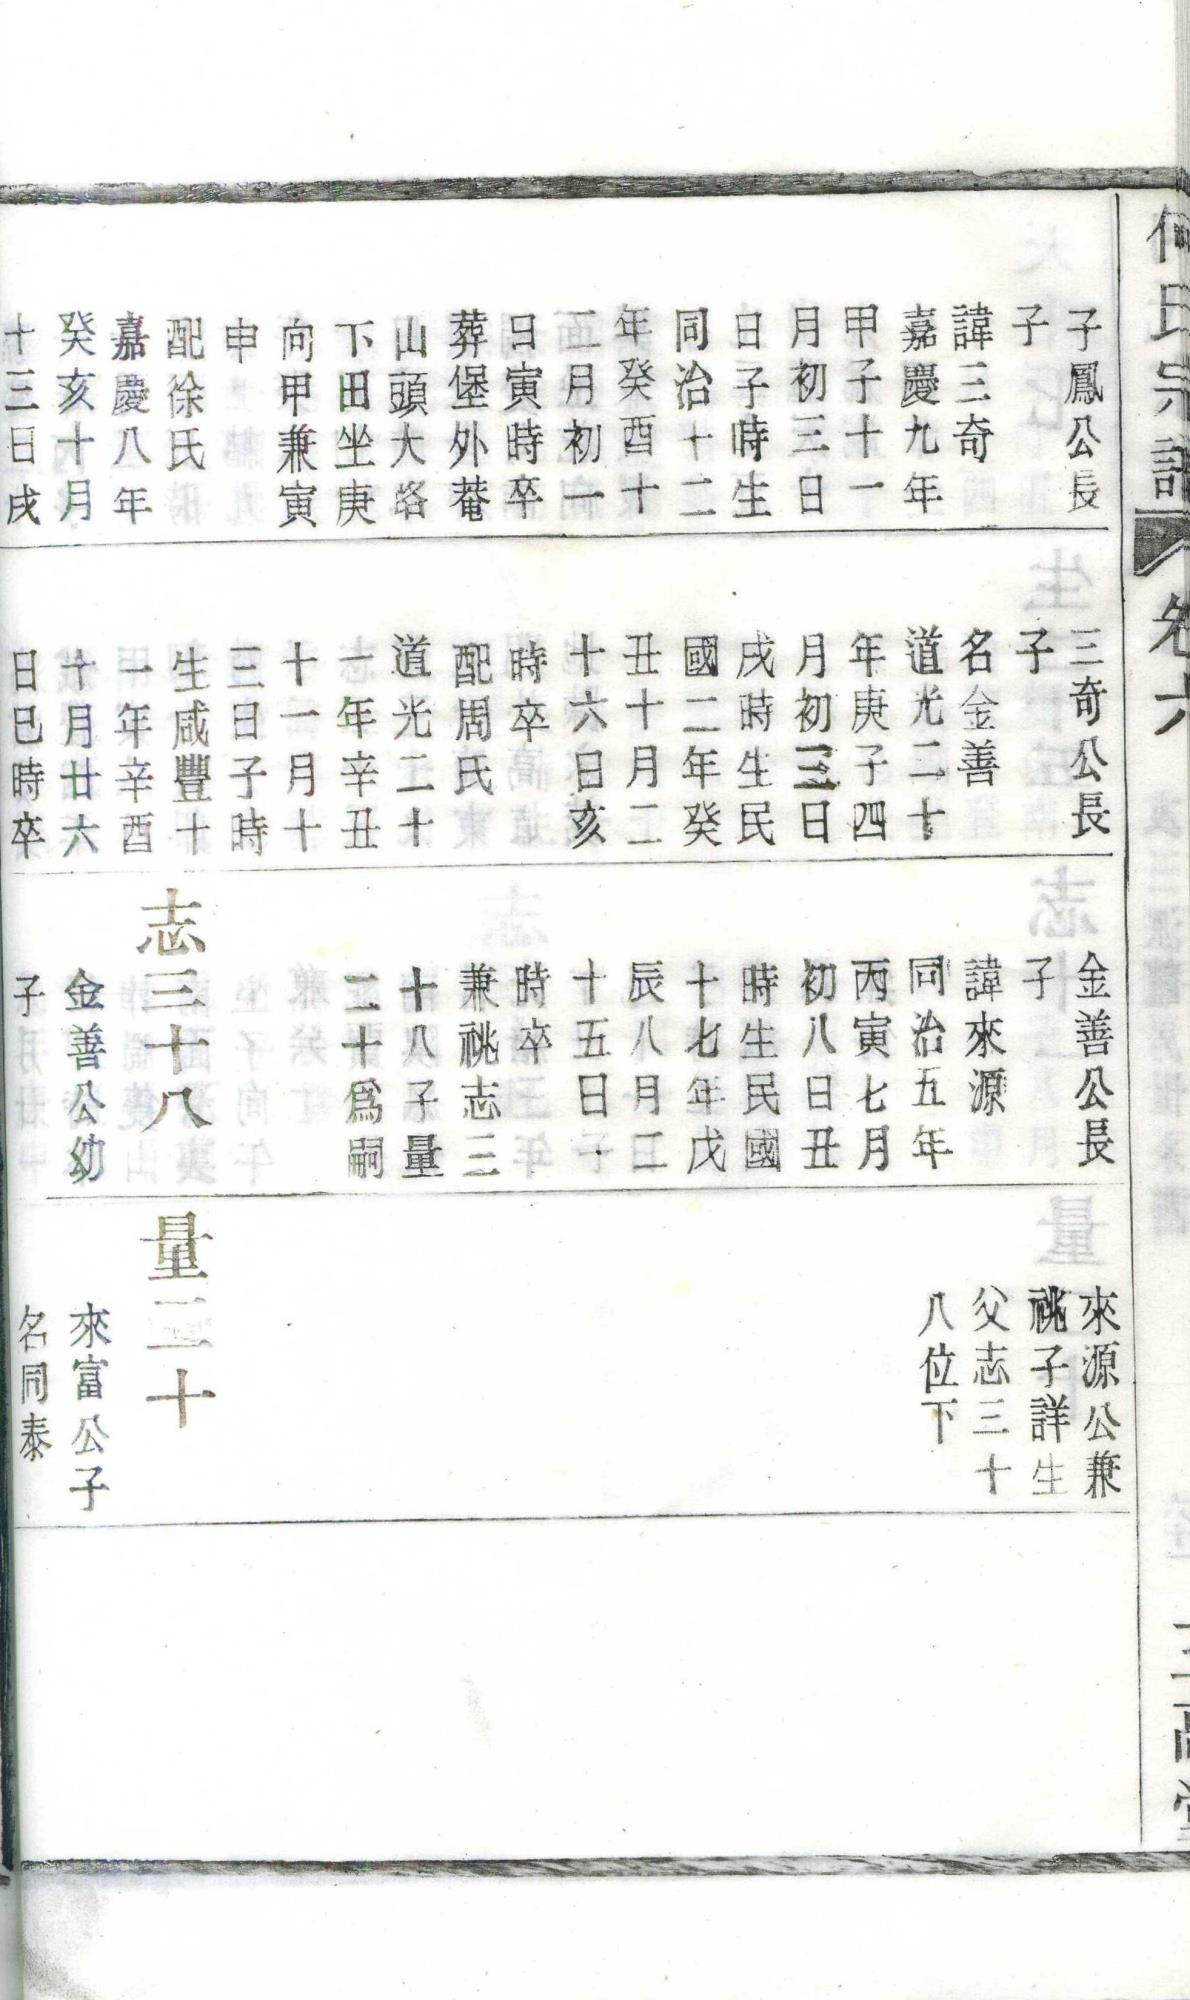 何氏宗譜
卷六
子鳳公長
子
諱三奇
嘉慶九年
甲子十一
月初三日
日子時生
同治十二
年癸酉十
二月初一
日寅時卒
葬堡外菴
山頭大路
下田坐庚
向甲兼寅
申
配徐氏
嘉慶八年
癸亥十月
十三日戌
三奇公長
子
名金善
道光二十
年庚子四
月初三日
戌時生民
國二年癸
丑十月二
十六日亥
時卒
配周氏
道光二十
一年辛丑
十一月十
三日子時
生咸豐十
一年辛酉
十月廿六
日巳時卒
金善公長
子
諱來源
同治五年
丙寅七月
初八日丑
時生民國
十七年戊
辰八月二
十五日子
時卒
兼祧志三
十八子量
二十爲嗣
志三十八
金善公幼
子
來源公兼
祧子詳生
父志三十
八位下
量二十
來富公子
名同泰